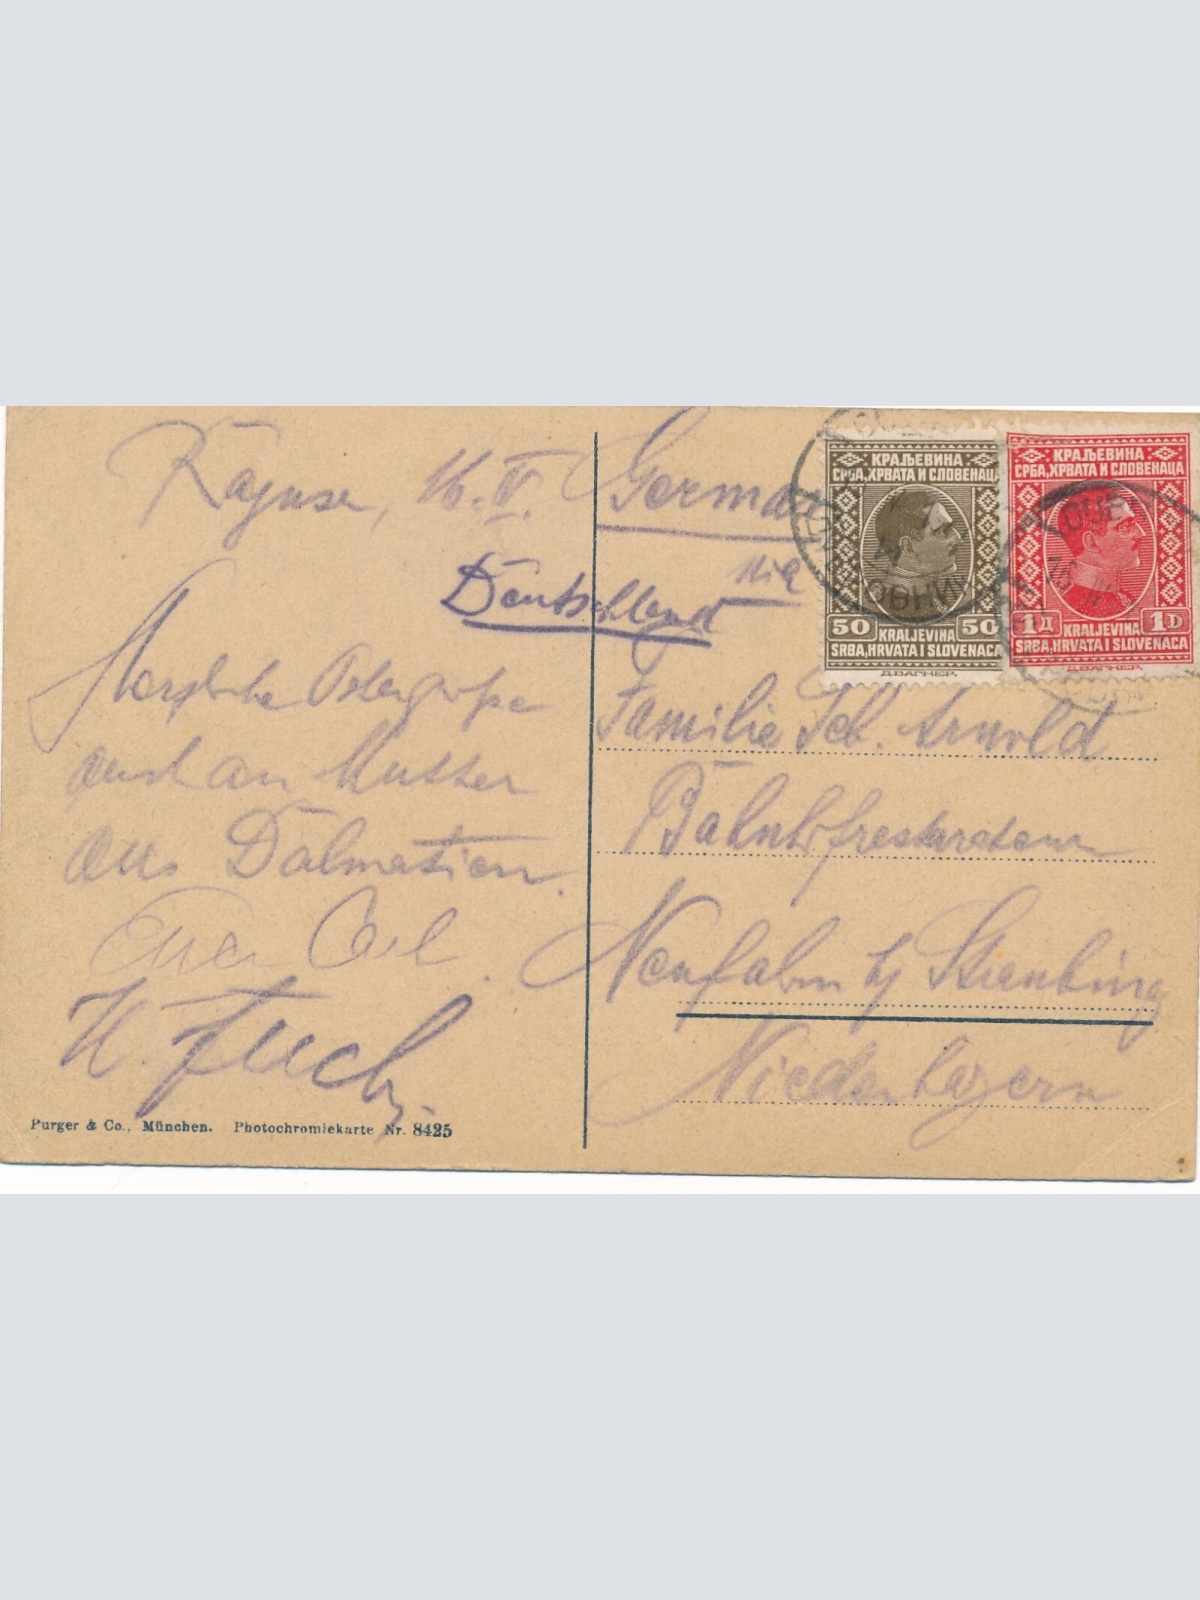 Ragusa, 16. IV.
Herzliche Ostergrüße
auch an Mutter
aus Dalmatien.
Euer
Purger & Co., München. Photochromiekarte Nr. 8425
Germania
Deutschland
КРАЉЕВИНА
СРБА, ХРВАТА И СЛОВЕНАЦА
50 KRALJEVINA 50
SRBA, HRVATA I SLOVENACA
Д.ВАГНЕР.
КРАЉЕВИНА
СРБА, ХРВАТА И СЛОВЕНАЦА
1Д KRALJEVINA 1D
SRBA, HRVATA I SLOVENACA
Д.ВАГНЕР.
Familie Seb. Arnold
Bahnhofrestaurateur
Neufahrn b/ Straubing
Niederbayern